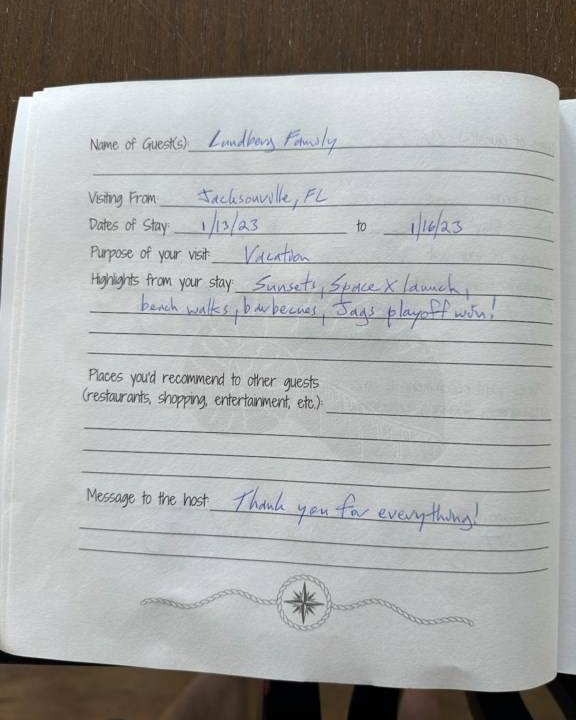 Name of Guest(s): Lundberg Family
Visiting From: Jacksonville, FL
Dates of Stay: 1/13/23 to 1/16/23
Purpose of your visit: Vacation
Highlights from your stay: Sunsets, Space X launch,
beach walks, barbecues, Jags playoff win!
Places you'd recommend to other guests
(restaurants, shopping, entertainment, etc.):
Message to the host: Thank you for everything!